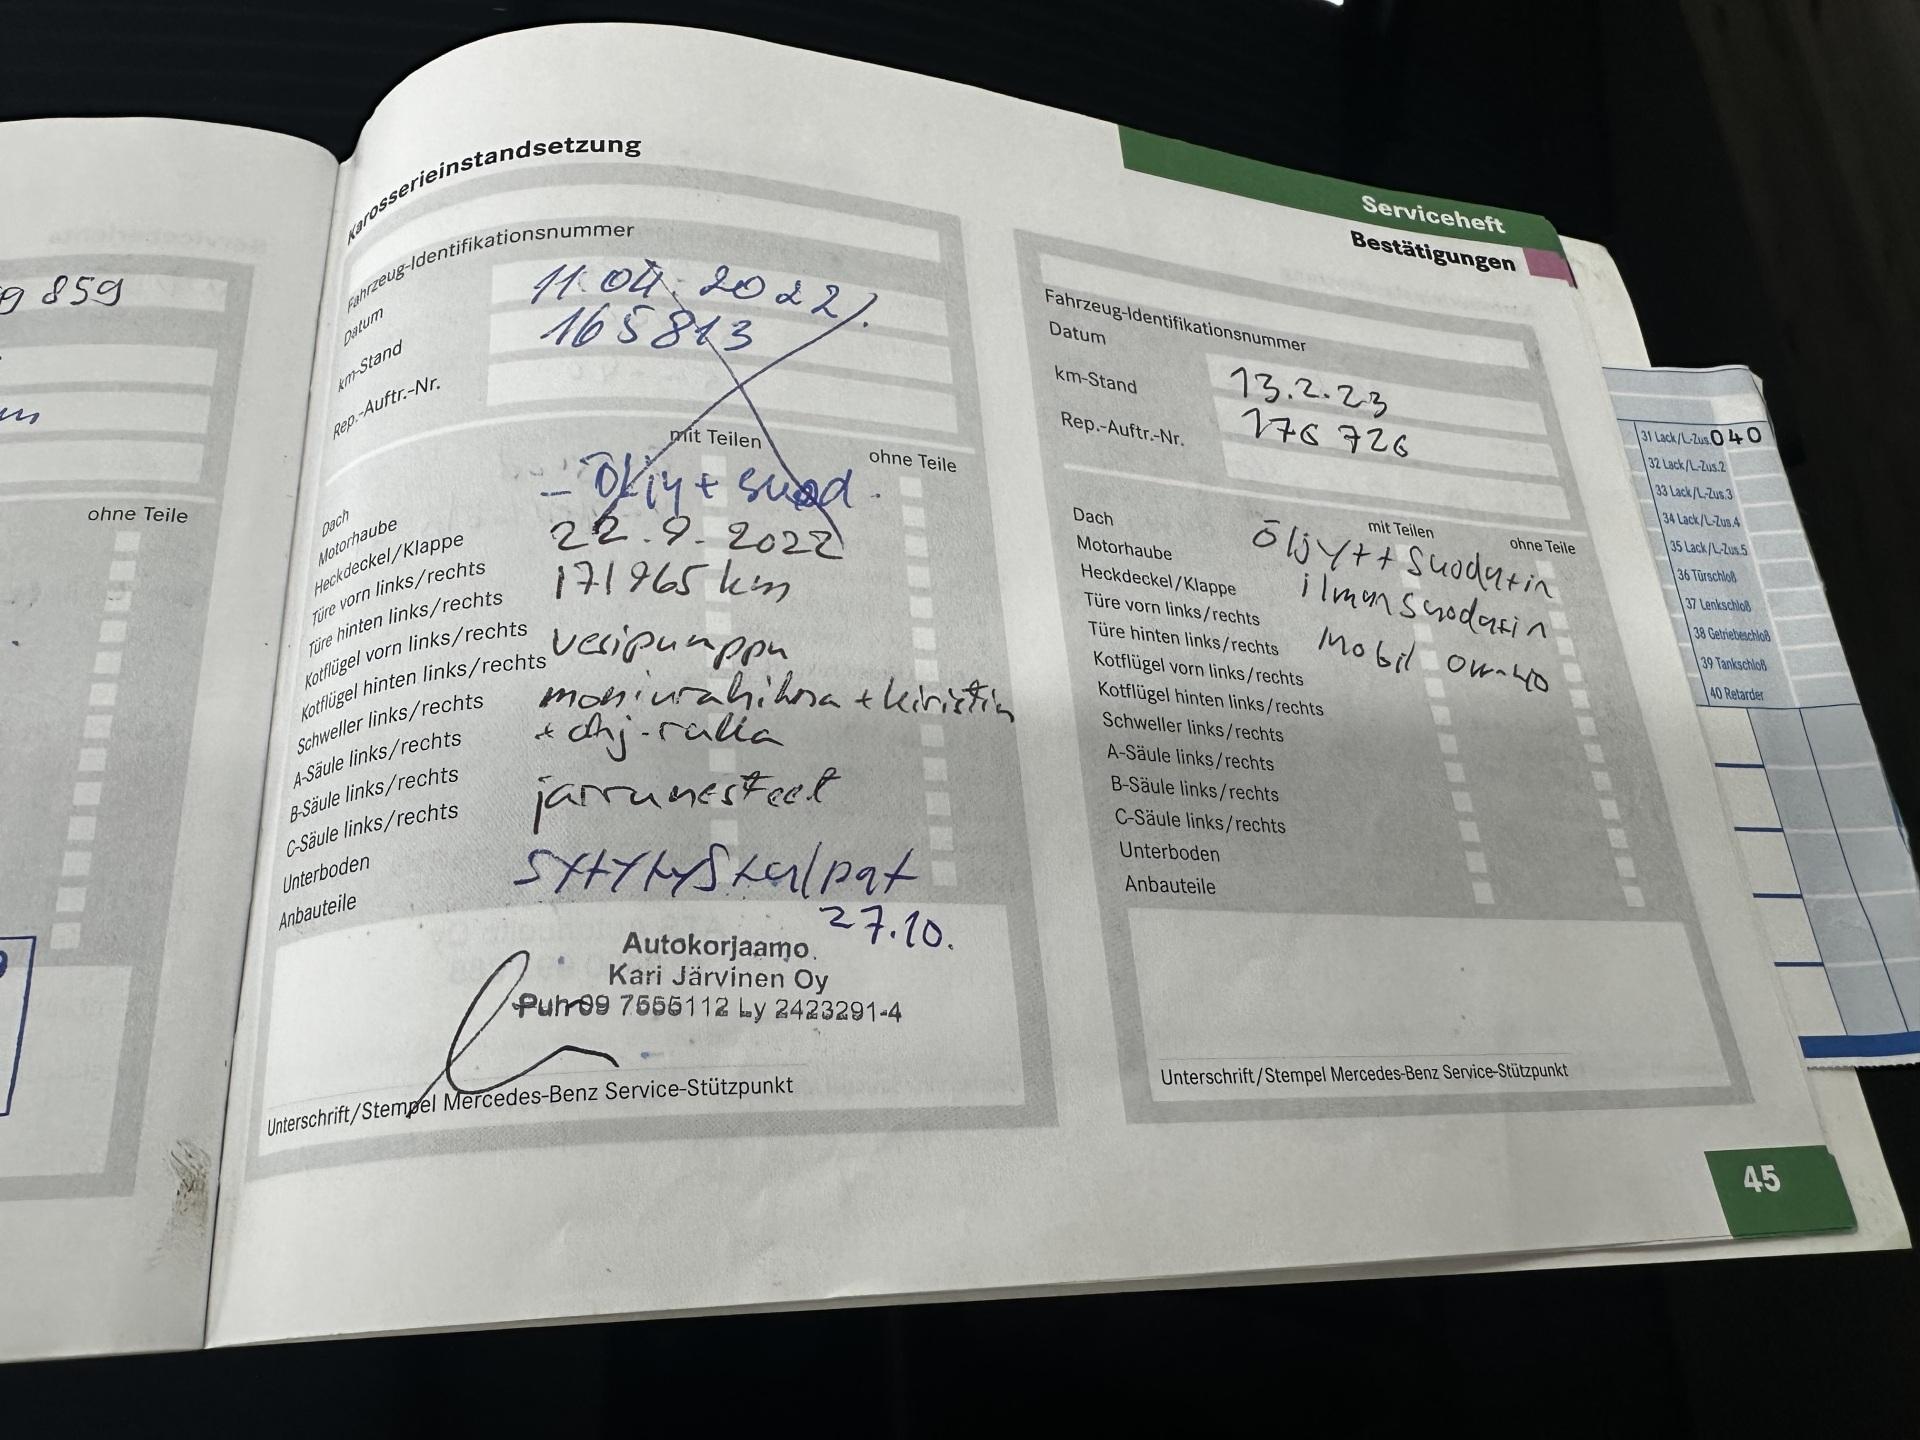 9 859
ohne Teile
Karosserieinstandsetzung
Fahrzeug-Identifikationsnummer
Datum
11.04.2022
km-Stand
165813
Rep.-Auftr.-Nr.
mit Teilen
ohne Teile
- Öljy + suod.
22.9.2022
171965 km
vesipumppu
moniurahihna + kiristin
+ ohj-rulla
jarrunesteet
sytytystulpat
27.10.
Dach
Motorhaube
Heckdeckel/Klappe
Türe vorn links/rechts
Türe hinten links/rechts
Kotflügel vorn links/rechts
Kotflügel hinten links/rechts
Schweller links/rechts
A-Säule links/rechts
B-Säule links/rechts
C-Säule links/rechts
Unterboden
Anbauteile
Autokorjaamo
Kari Järvinen Oy
Puh 09 7556112 Ly 2423291-4
Unterschrift/Stempel Mercedes-Benz Service-Stützpunkt
Serviceheft
Bestätigungen
Fahrzeug-Identifikationsnummer
Datum
13.2.23
km-Stand
176 726
Rep.-Auftr.-Nr.
mit Teilen
ohne Teile
Öljyt + Suodatin
ilmansuodatin
Mobil 0w-40
Dach
Motorhaube
Heckdeckel/Klappe
Türe vorn links/rechts
Türe hinten links/rechts
Kotflügel vorn links/rechts
Kotflügel hinten links/rechts
Schweller links/rechts
A-Säule links/rechts
B-Säule links/rechts
C-Säule links/rechts
Unterboden
Anbauteile
Unterschrift/Stempel Mercedes-Benz Service-Stützpunkt
45
31 Lack/L-Zus. 040
32 Lack/L-Zus.2
33 Lack/L-Zus.3
34 Lack/L-Zus.4
35 Lack/L-Zus.5
36 Türschloß
37 Lenkschloß
38 Getriebeschloß
39 Tankschloß
40 Retarder